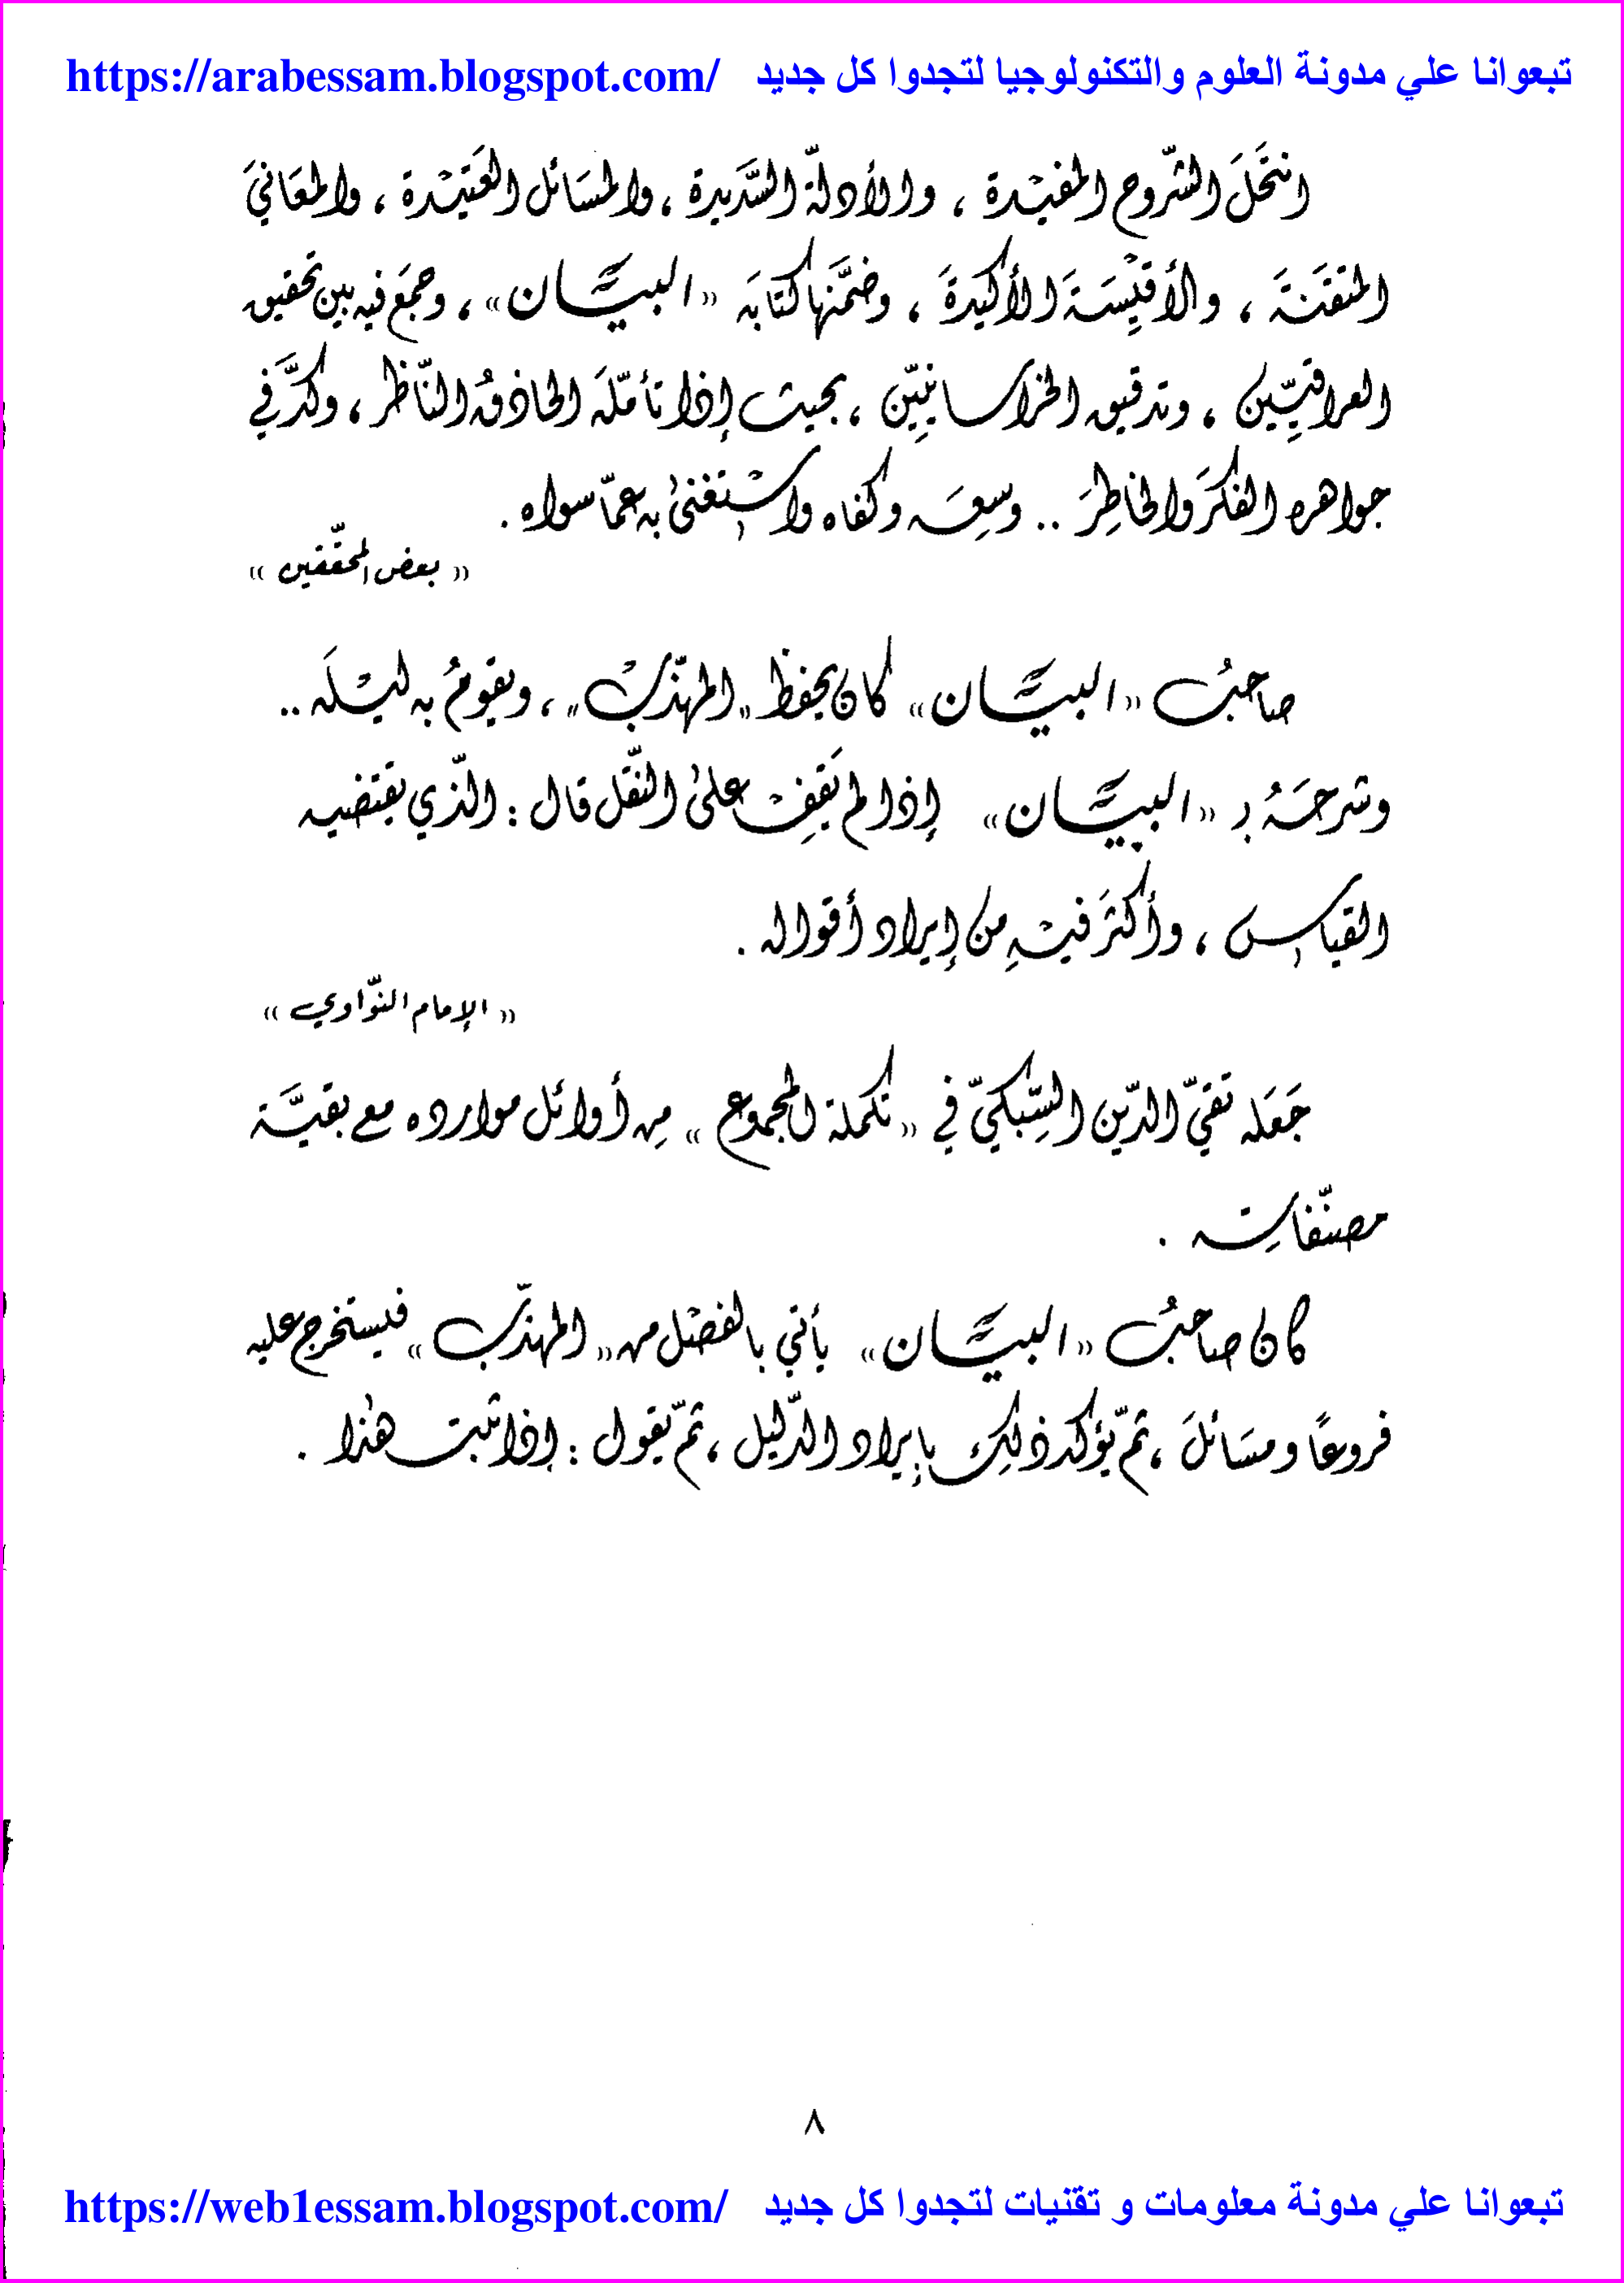 تبعوانا علي مدونة العلوم والتكنولوجيا لتجدوا كل جديد https://arabessam.blogspot.com/
انتَحَلَ الشّروح المفيْدة ، والأدلّة السَّديدة ، والمسَائل العَتيْدة ، والمعَانيَ
المتقَنَةَ ، والأقيِسَةَ الأكيدَةَ ، وضمَّنها كتابَه «البيَّان» ، وجمَع فيه بين تحقيق
العراقيّين ، وتدقيق الخراسانيّين ، بحيث إذا تأمّلَه الحاذقُ النّاظر ، وكدَّ في
جواهره الفكَر والخاطِرَ .. وسِعَه وكفاه واسْتغنىٰ به عمّا سواه .
« بعض المحقّقين »
صاحبُ «البيَّان» كان يحفظ «المهذّبْ» ، ويقومُ به ليْلَه ..
وشرحَهُ بـ «البيَّان» إذا لم يَقِفْ علىٰ النّقل قال : الّذي يقتضيه
القياس ، وأكثَر فيْهِ من إيراد أقواله .
« الإمام النّواوي »
جَعَله تقيّ الدّين السِّبكيّ في « تكملة المجموع » مِن أوائل موارده مع بقيَّة
مصنّفاتِه .
كان صاحبُ «البيَّان» يأتي بالفصْل من « المهذّب » فيستخرج عليه
فروعًا ومسَائلَ ، ثمّ يؤكد ذلِك بإيراد الدّليل ، ثمّ يقول : إذا ثبت هٰذا .
٨
تبعوانا علي مدونة معلومات و تقنيات لتجدوا كل جديد https://web1essam.blogspot.com/